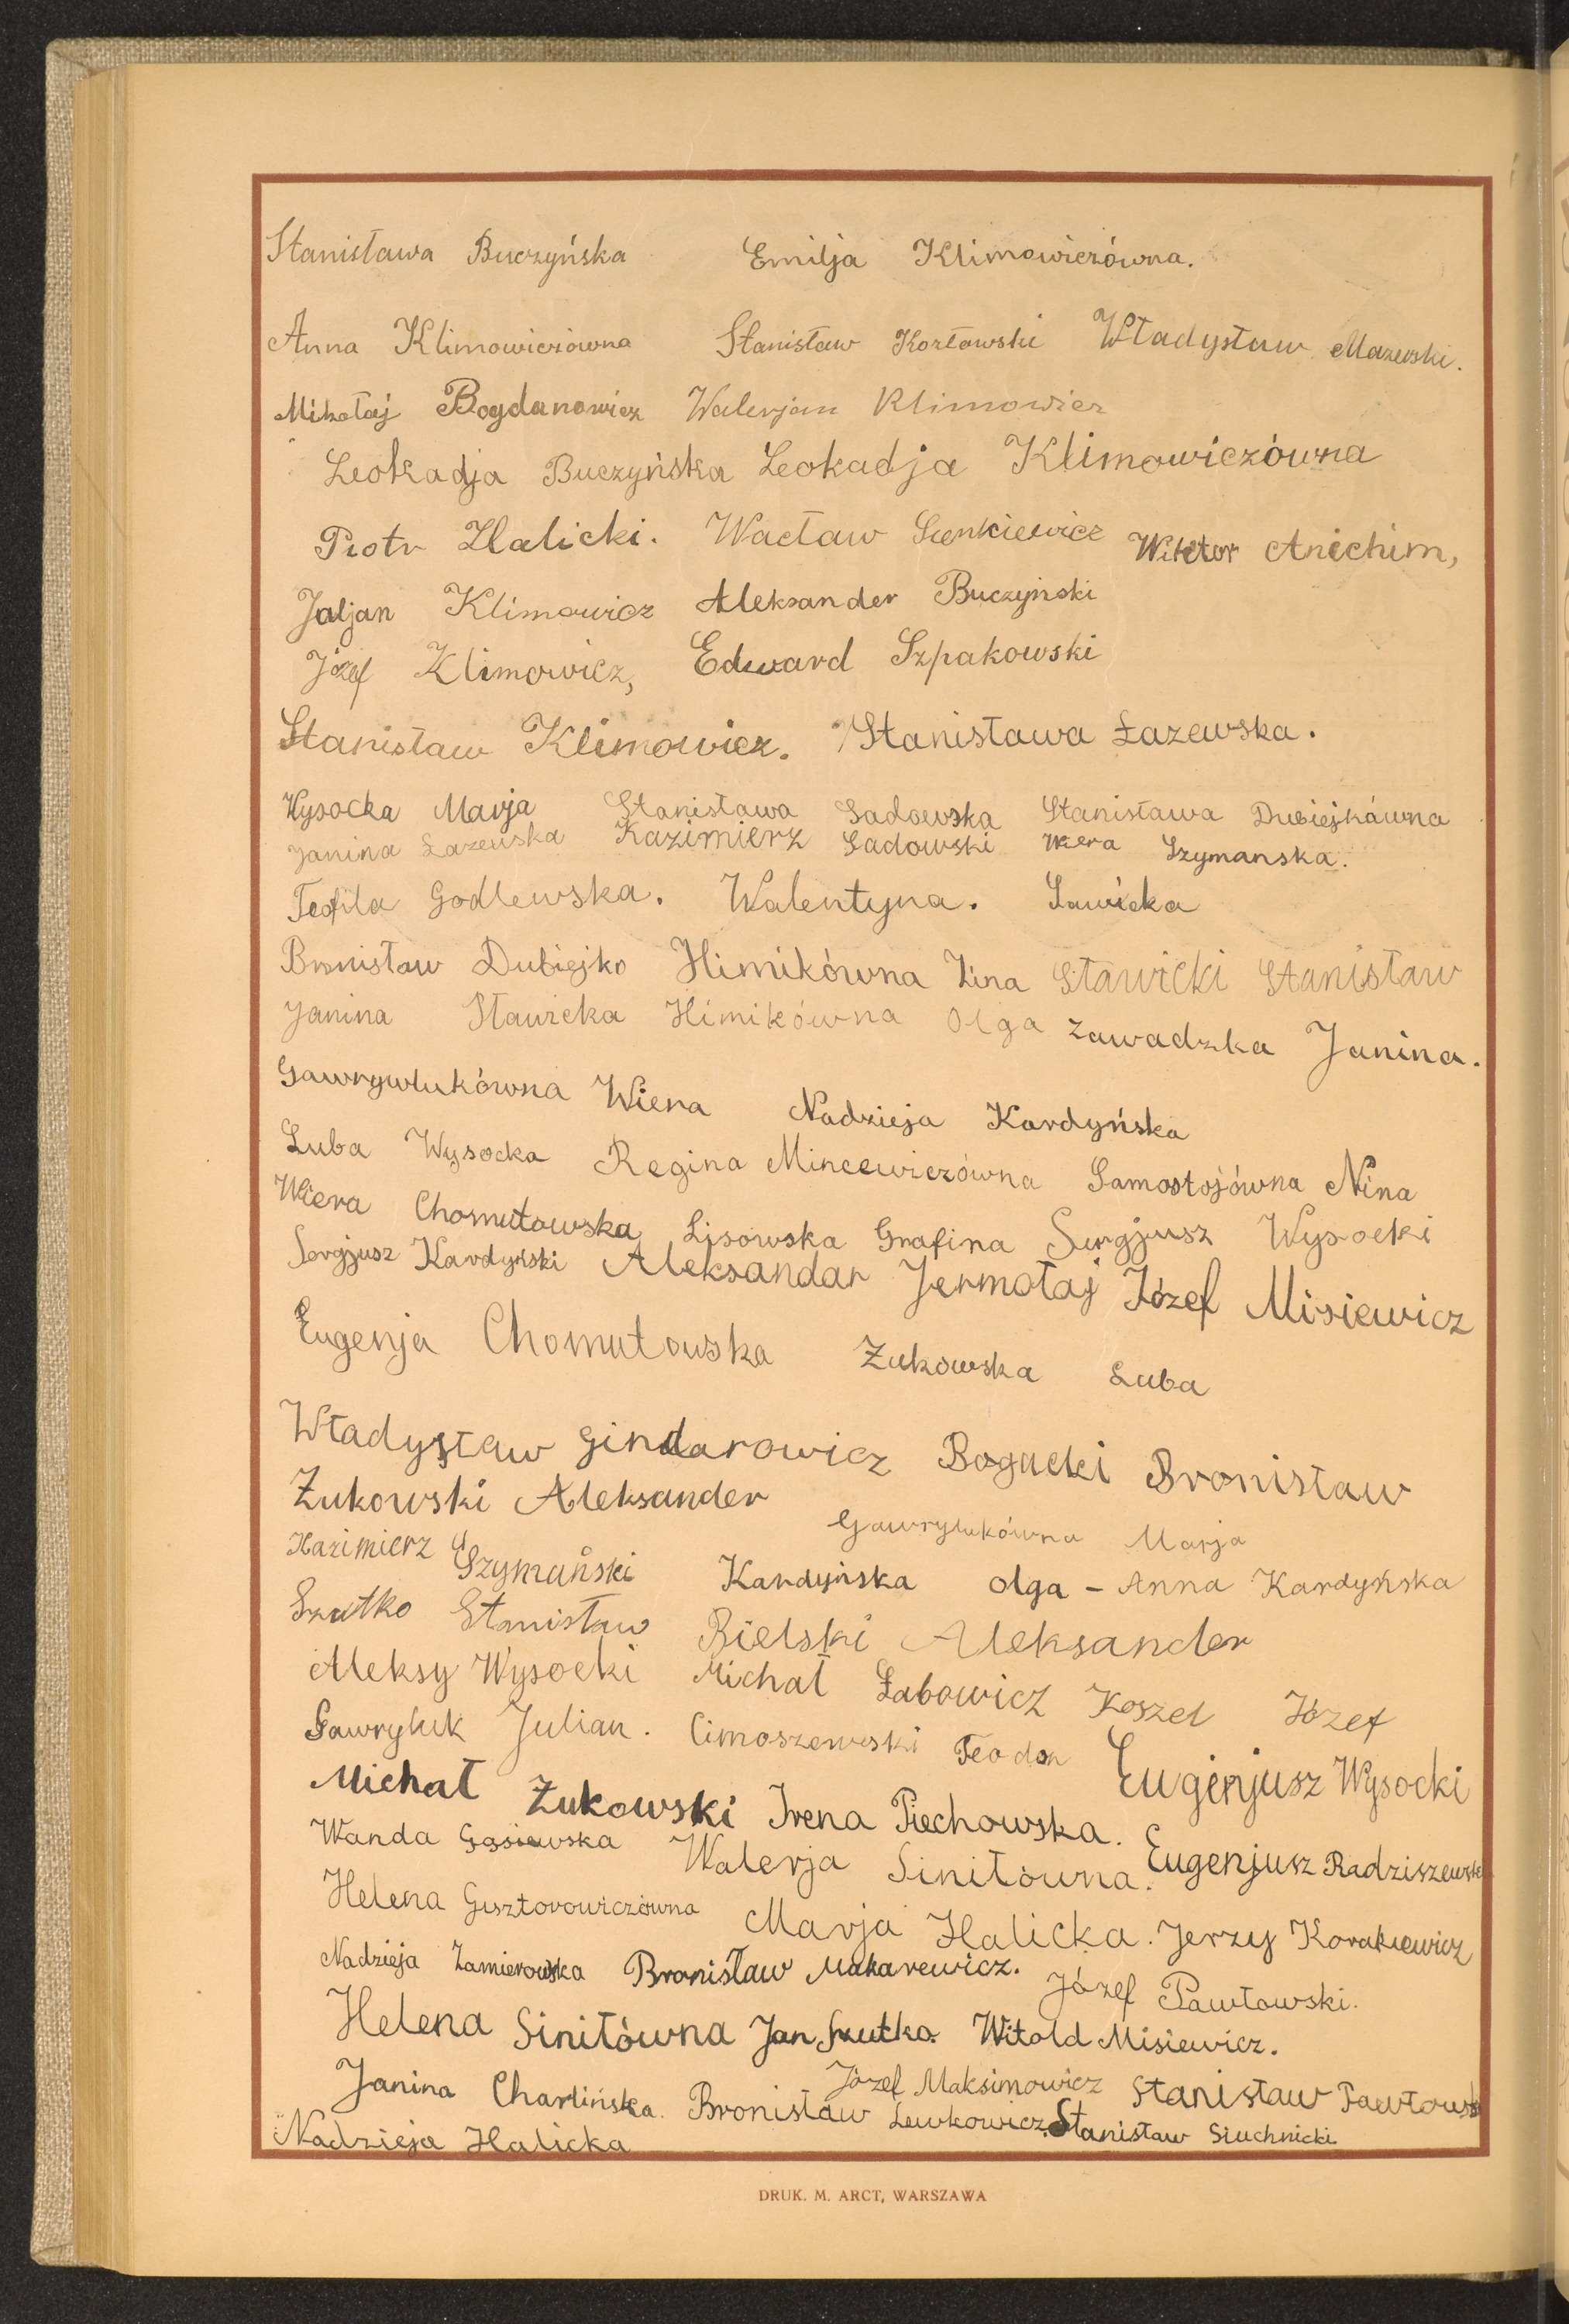 Stanisława Buczyńska Emilja Klimowiczówna.
Anna Klimowiczówna Stanisław Kozłowski Władysław Mazewski.
Mikołaj Bogdanowicz Walerjan Klimowicz
Leokadja Buczyńska Leokadja Klimowiczówna
Piotr Halicki. Wacław Sienkiewicz Wiktor Anichim,
Juljan Klimowicz Aleksander Buczyński
Józef Klimowicz, Edward Szpakowski
Stanisław Klimowicz. Stanisława Łazewska.
Wysocka Marja Stanisława Sadowska Stanisława Dubiejkówna
Janina Łazewska Kazimierz Sadowski Wiera Szymanska.
Teofila Godlewska. Walentyna. Sawicka
Bronisław Dubiejko Himikówna Zina Sławicki Stanisław
Janina Sławicka Himikówna Olga Zawadzka Janina.
Gawrywlukówna Wiera Nadzieja Kardyńska
Luba Wysocka Regina Mincewiczówna Samostojówna Nina
Wiera Chomutowska Lisowska Grafina Sergjusz Wysocki
Sergjusz Kardyński Aleksandar Jermołaj Józef Misiewicz
Eugenja Chomutowska Żukowska Luba
Władysław Gindarowicz Bogucki Bronisław
Żukowski Aleksander
Gawrylukówna Marja
Kazimierz Szymański Kardyńska Olga - Anna Kardyńska
Szutko Stanisław Bielski Aleksander
Aleksy Wysocki Michał Łabowicz Koszel Józef
Gawryluk Julian. Cimoszewski Teodor Eugenjusz Wysocki
Michał Żukowski Irena Piechowska.
Wanda Gąsiewska Walerja Siniłówna. Eugenjusz Radziszewski
Helena Gisztorowiczówna Marja Halicka. Jerzy Korakiewicz
Nadzieja Zamierowska Bronisław Makarewicz. Józef Pawłowski.
Helena Siniłówna Jan Szutko. Witold Misiewicz.
Janina Charlińska. Józef Maksimowicz Stanisław Pawłowski
Bronisław Lewkowicz. Stanisław Siuchnicki
Nadzieja Halicka
DRUK. M. ARCT, WARSZAWA